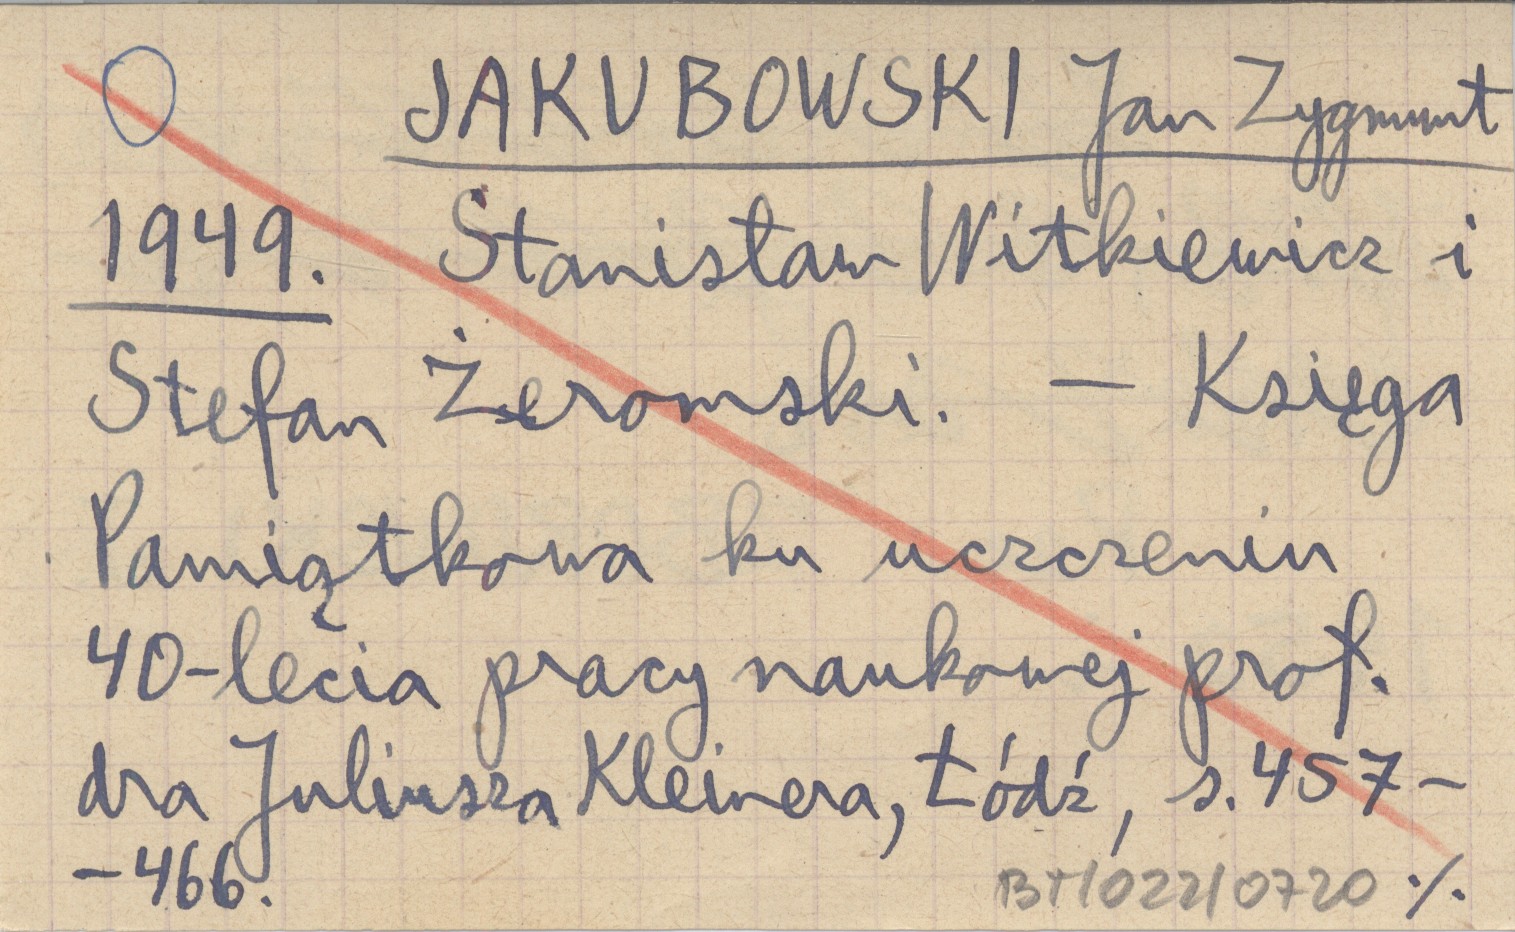 JAKUBOWSKI Jan Zygmunt
1949. Stanisław Witkiewicz i
Stefan Żeromski. — Księga
Pamiątkowa ku uczczeniu
40-lecia pracy naukowej prof.
dra Juliusza Kleinera, Łódź, s. 457-
-466.
BT/022/0720 ·/.